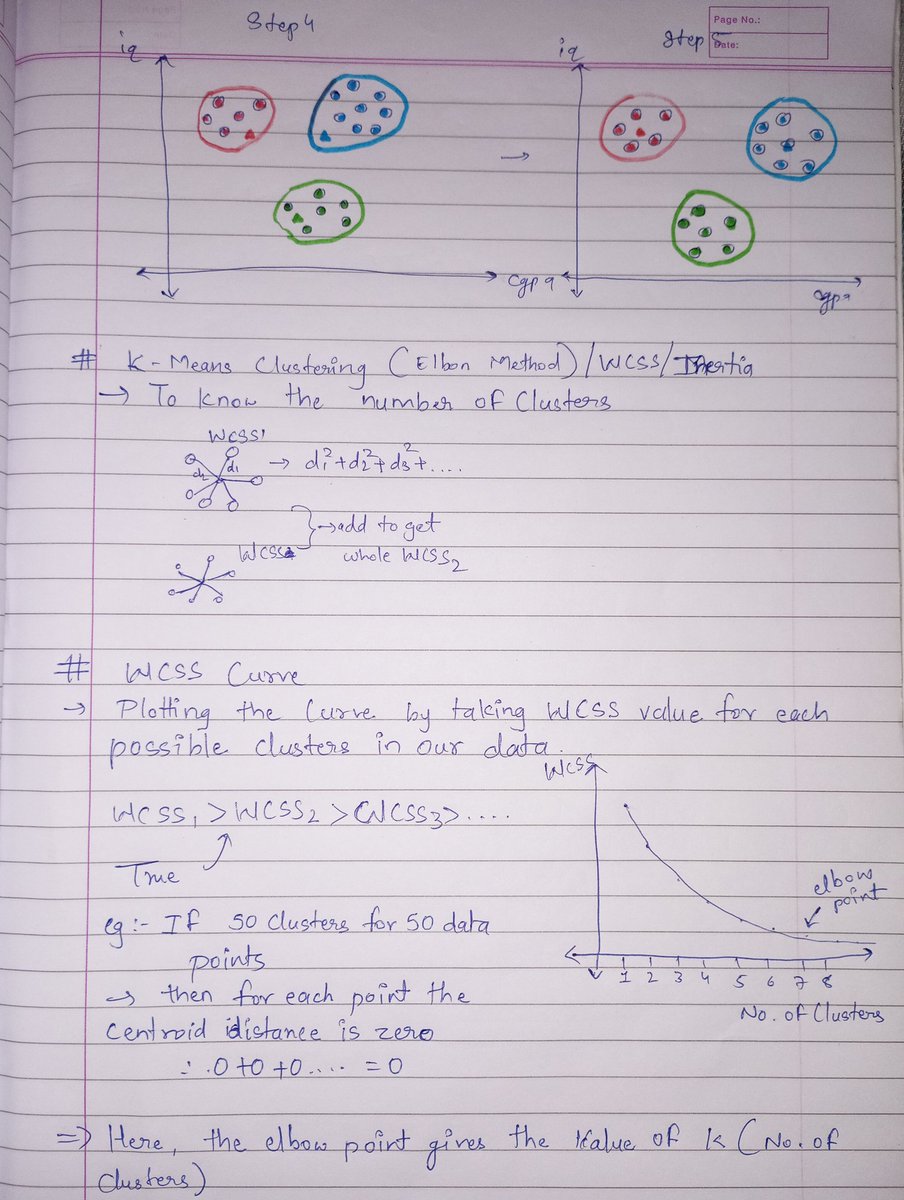 Step 4
Page No.:
Step 5
Date:
iq
iq
cgpa
cgpa
# K-Means Clustering (Elbon Method)/WCSS/Inertia
→ To know the number of Clusters
WCSS1
d1
d2
→ d1²+d2²+d3²+....
WCSS2
}→add to get
whole WCSS2
# WCSS Curve
→ Plotting the Curve by taking WCSS value for each
possible clusters in our data.
WCSS
WCSS1 >WCSS2 >WCSS3>....
True
elbow
point
eg:- If 50 Clusters for 50 data
points
→ then for each point the
Centroid distance is zero
∴ 0+0+0.... =0
1 2 3 4 5 6 7 8
No. of Clusters
⇒ Here, the elbow point gives the Value of K (No. of
Clusters)